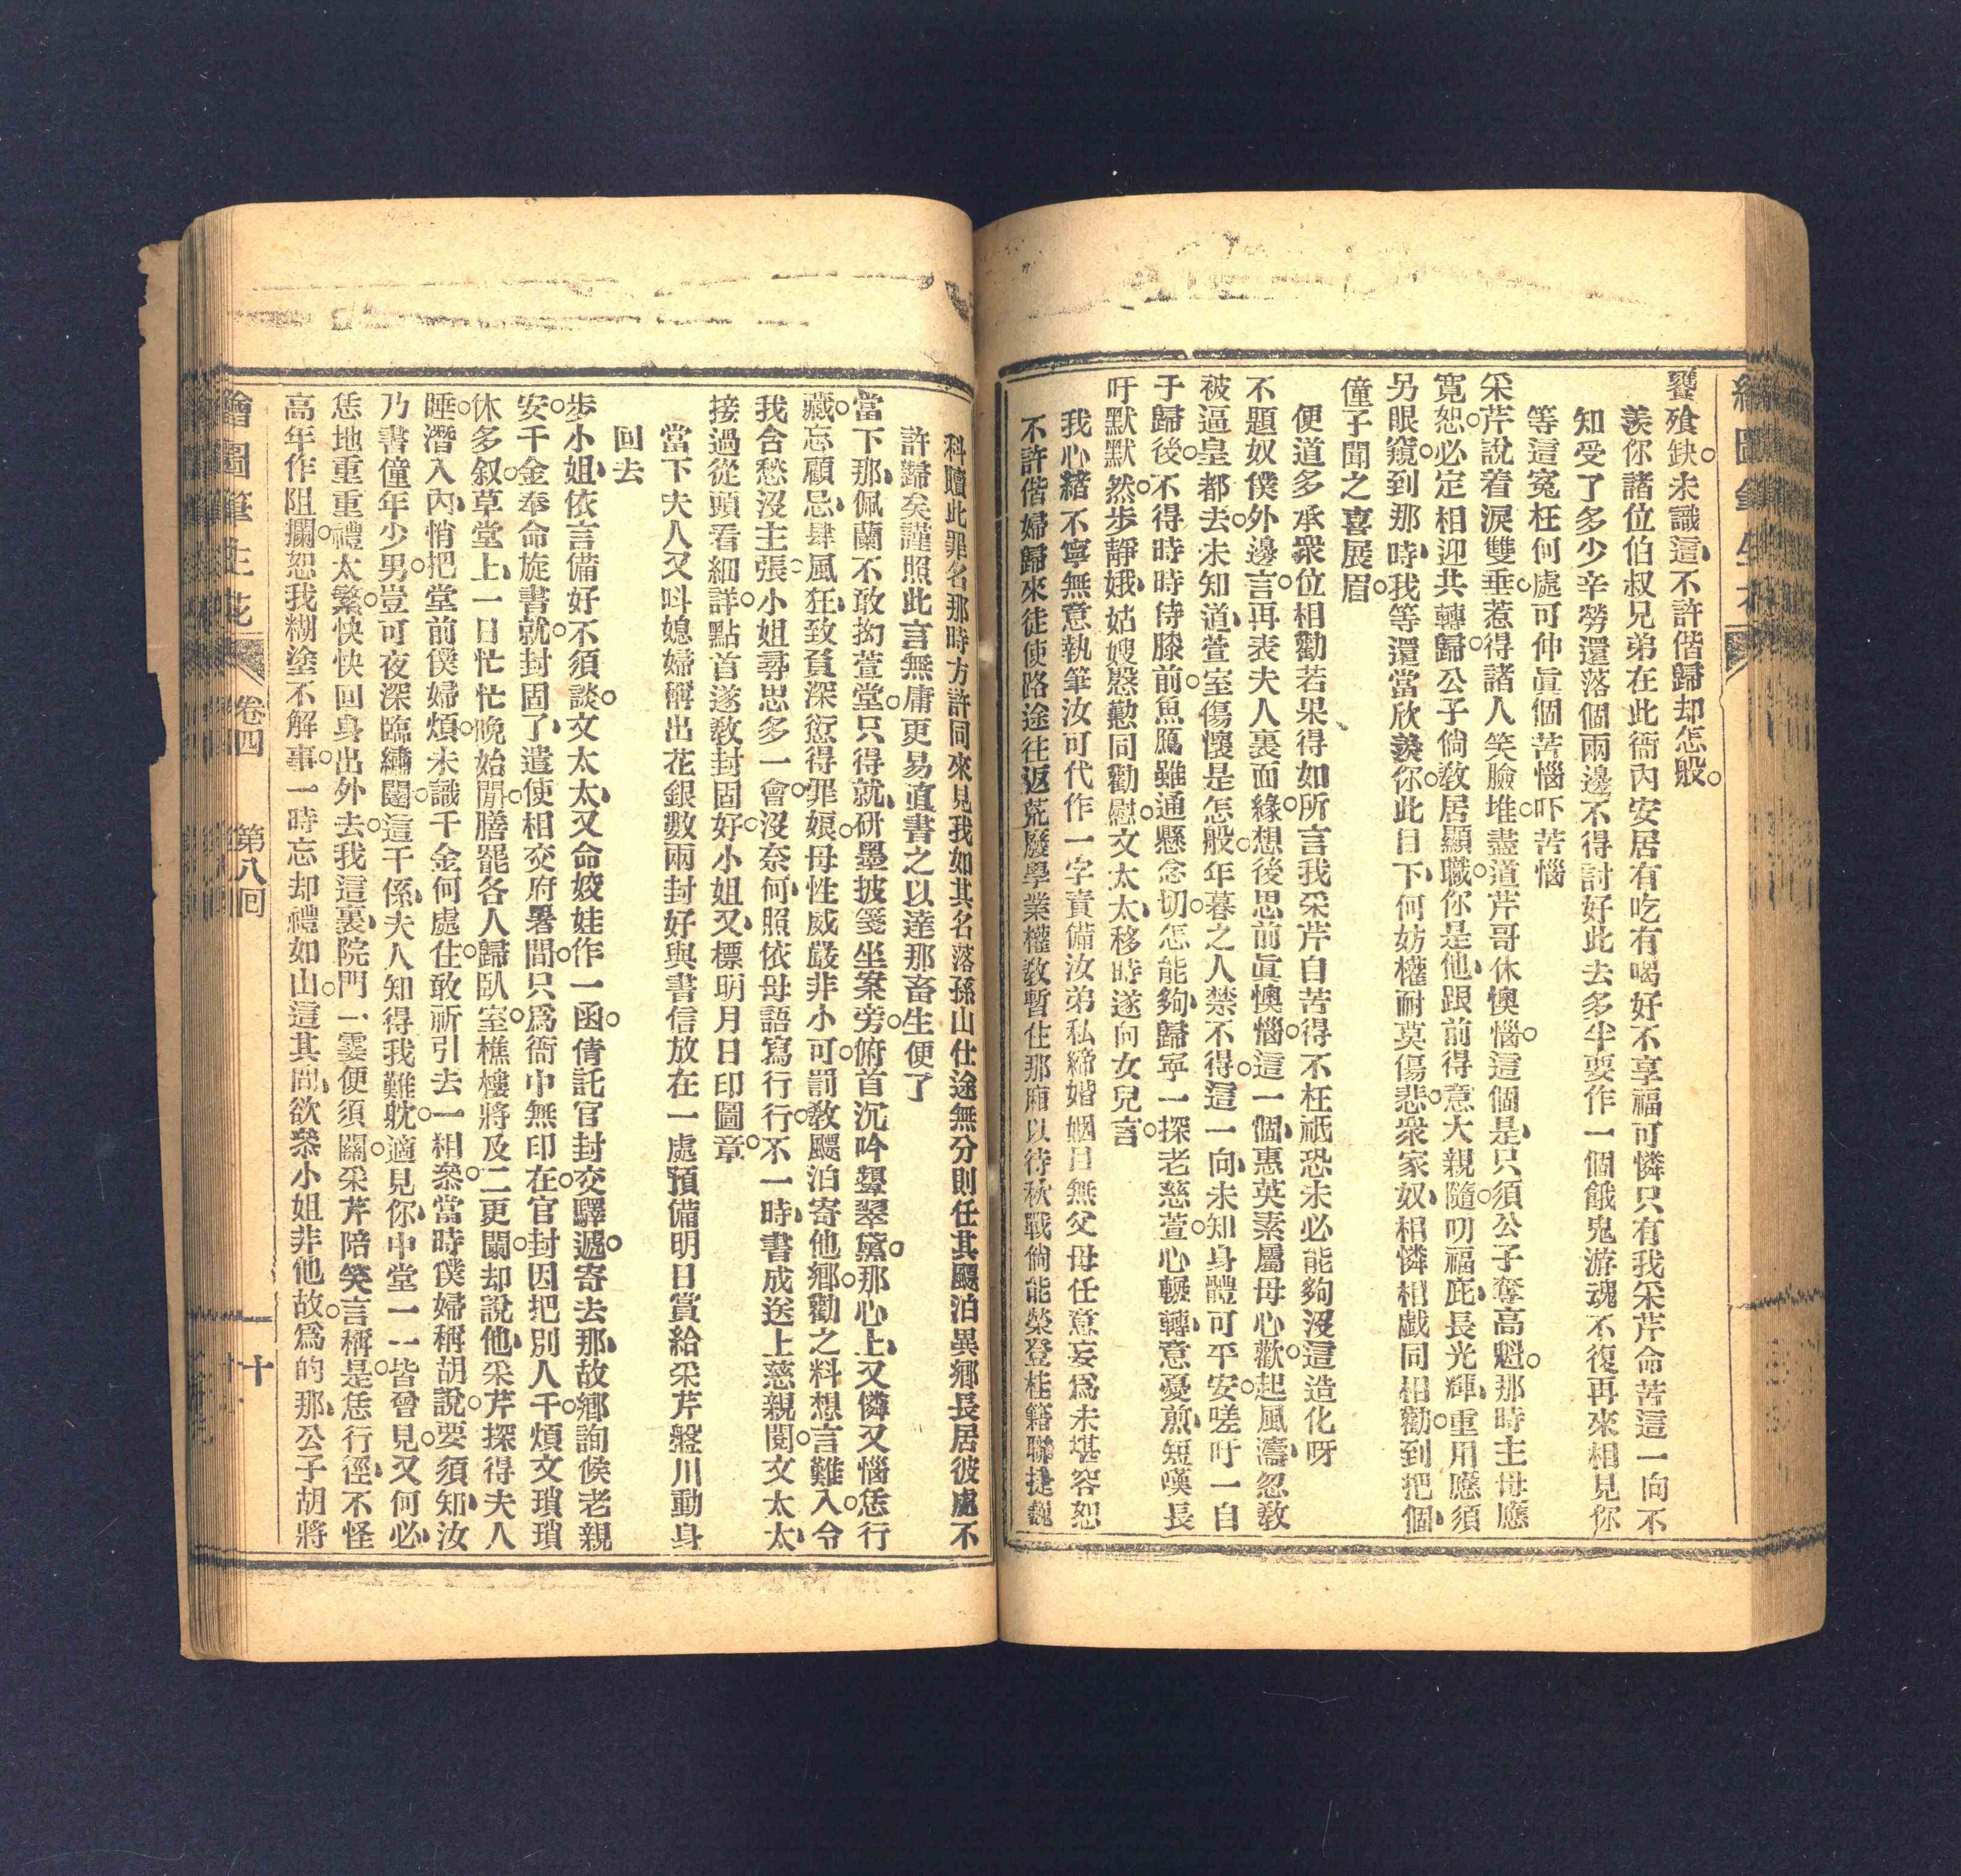 饔飧缺○未識這、不許偕歸却怎般○
羨你諸位伯叔兄弟在此衙內安居有吃有喝好不享福可憐只有我采芹命苦這一向不
知受了多少辛勞還落個兩邊不得討好此去多半要作一個餓鬼游魂不復再來相見你
等這寃枉何處可伸眞個苦惱吓苦惱
采芹說着淚雙垂○惹得諸人笑臉堆○盡道芹哥休懊惱○這個是、只須公子奪高魁○那時主母應
寬恕○必定相迎共轉歸○公子倘敎居顯職○你是他、跟前得意大親隨○叨福庇、長光輝、重用應須
另眼窺○到那、時我等還當欣羨你○此目下、何妨權耐莫傷悲○衆家奴、相憐相戲同相勸○到把個、
僮子聞之喜展眉○
便道多承衆位相勸若果得如所言我采芹自苦得不枉祗恐未必能夠沒這造化呀
不題奴僕外邊言○再表夫人裏面緣○想後思前眞懊惱○這一個、惠英素屬母心歡○起風濤、忽敎
被逼皇都去○未知道、萱室傷懷是怎般○年暮之人禁不得○這一向、未知身體可平安○嗟吁一自
于歸後○不得時時侍膝前○魚鴈雖通懸念切○怎能夠、歸寧一探老慈萱○心輾轉、意憂煎、短嘆長
吁默默然○步靜娥、姑嫂慇懃同勸慰○文太太、移時遂向女兒言○
我心緒不寧無意執筆汝可代作一字責備汝弟私締婚姻目無父母任意妄爲未堪容恕
不許偕婦歸來徒使路途往返荒廢學業權敎暫住那廂以待秋戰倘能榮登桂籍聯捷巍
科贖此罪名那時方許同來見我如其名落孫山仕途無分則任其飄泊異鄉長居彼處不
許歸矣謹照此言無庸更易直書之以達那畜生便了
當下那、佩蘭不敢拗萱堂○只得就、研墨披箋坐案旁○俯首沉吟顰翠黛○那心上、又憐又惱恁行
藏○忘顧忌、肆風狂、致貧深愆得罪娘○母性威嚴非小可○罰敎飄泊寄他鄉○勸之料想言難入○令
我含愁沒主張○小姐尋思多一會○沒奈何、照依母語寫行行○不一時、書成送上慈親閱○文太太、
接過從頭看細詳○點首遂敎封固好○小姐又、標明月日印圖章○
當下夫人又呌媳婦稱出花銀數兩封好與書信放在一處預備明日賞給采芹盤川動身
回去
步小姐、依言備好不須談○文太太、又命姣娃作一函○倩託官封交驛遞○寄去那、故鄉詢侯老親
安○千金奉命旋書就○封固了、遣使相交府署間○只爲衙中無印在○官封因把別人干○煩文瑣瑣
休多叙○草堂上、一日忙忙晚始閒○膳罷各人歸臥室○樵樓將及二更闌○却說他、采芹探得夫人
睡○潛入內、悄把堂前僕婦煩○未識千金何處住○敢祈引去一相叅○當時僕婦稱胡說○要須知、汝
乃書僮年少男○豈可夜深臨繡闥○這干係、夫人知得我難躭○適見你、中堂一一皆曾見○又何必、
恁地重重禮太繁○快快回身出外去○我這裏、院門一霎便須關○采芹陪笑言稱是○恁行徑、不怪
高年作阻攔○恕我糊塗不解事○一時忘却禮如山○這其間、欲叅小姐非他故○爲的那、公子胡將
繪圖筆生花
卷四
第八回
十